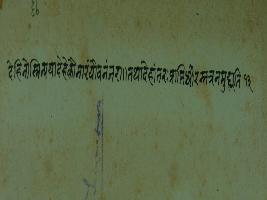 देहिनोस्मिन्यथादेहेकौमारंयौवनंजरा॥तथादेहांतरप्राप्तिर्धीरस्तत्रनमुह्यति १३